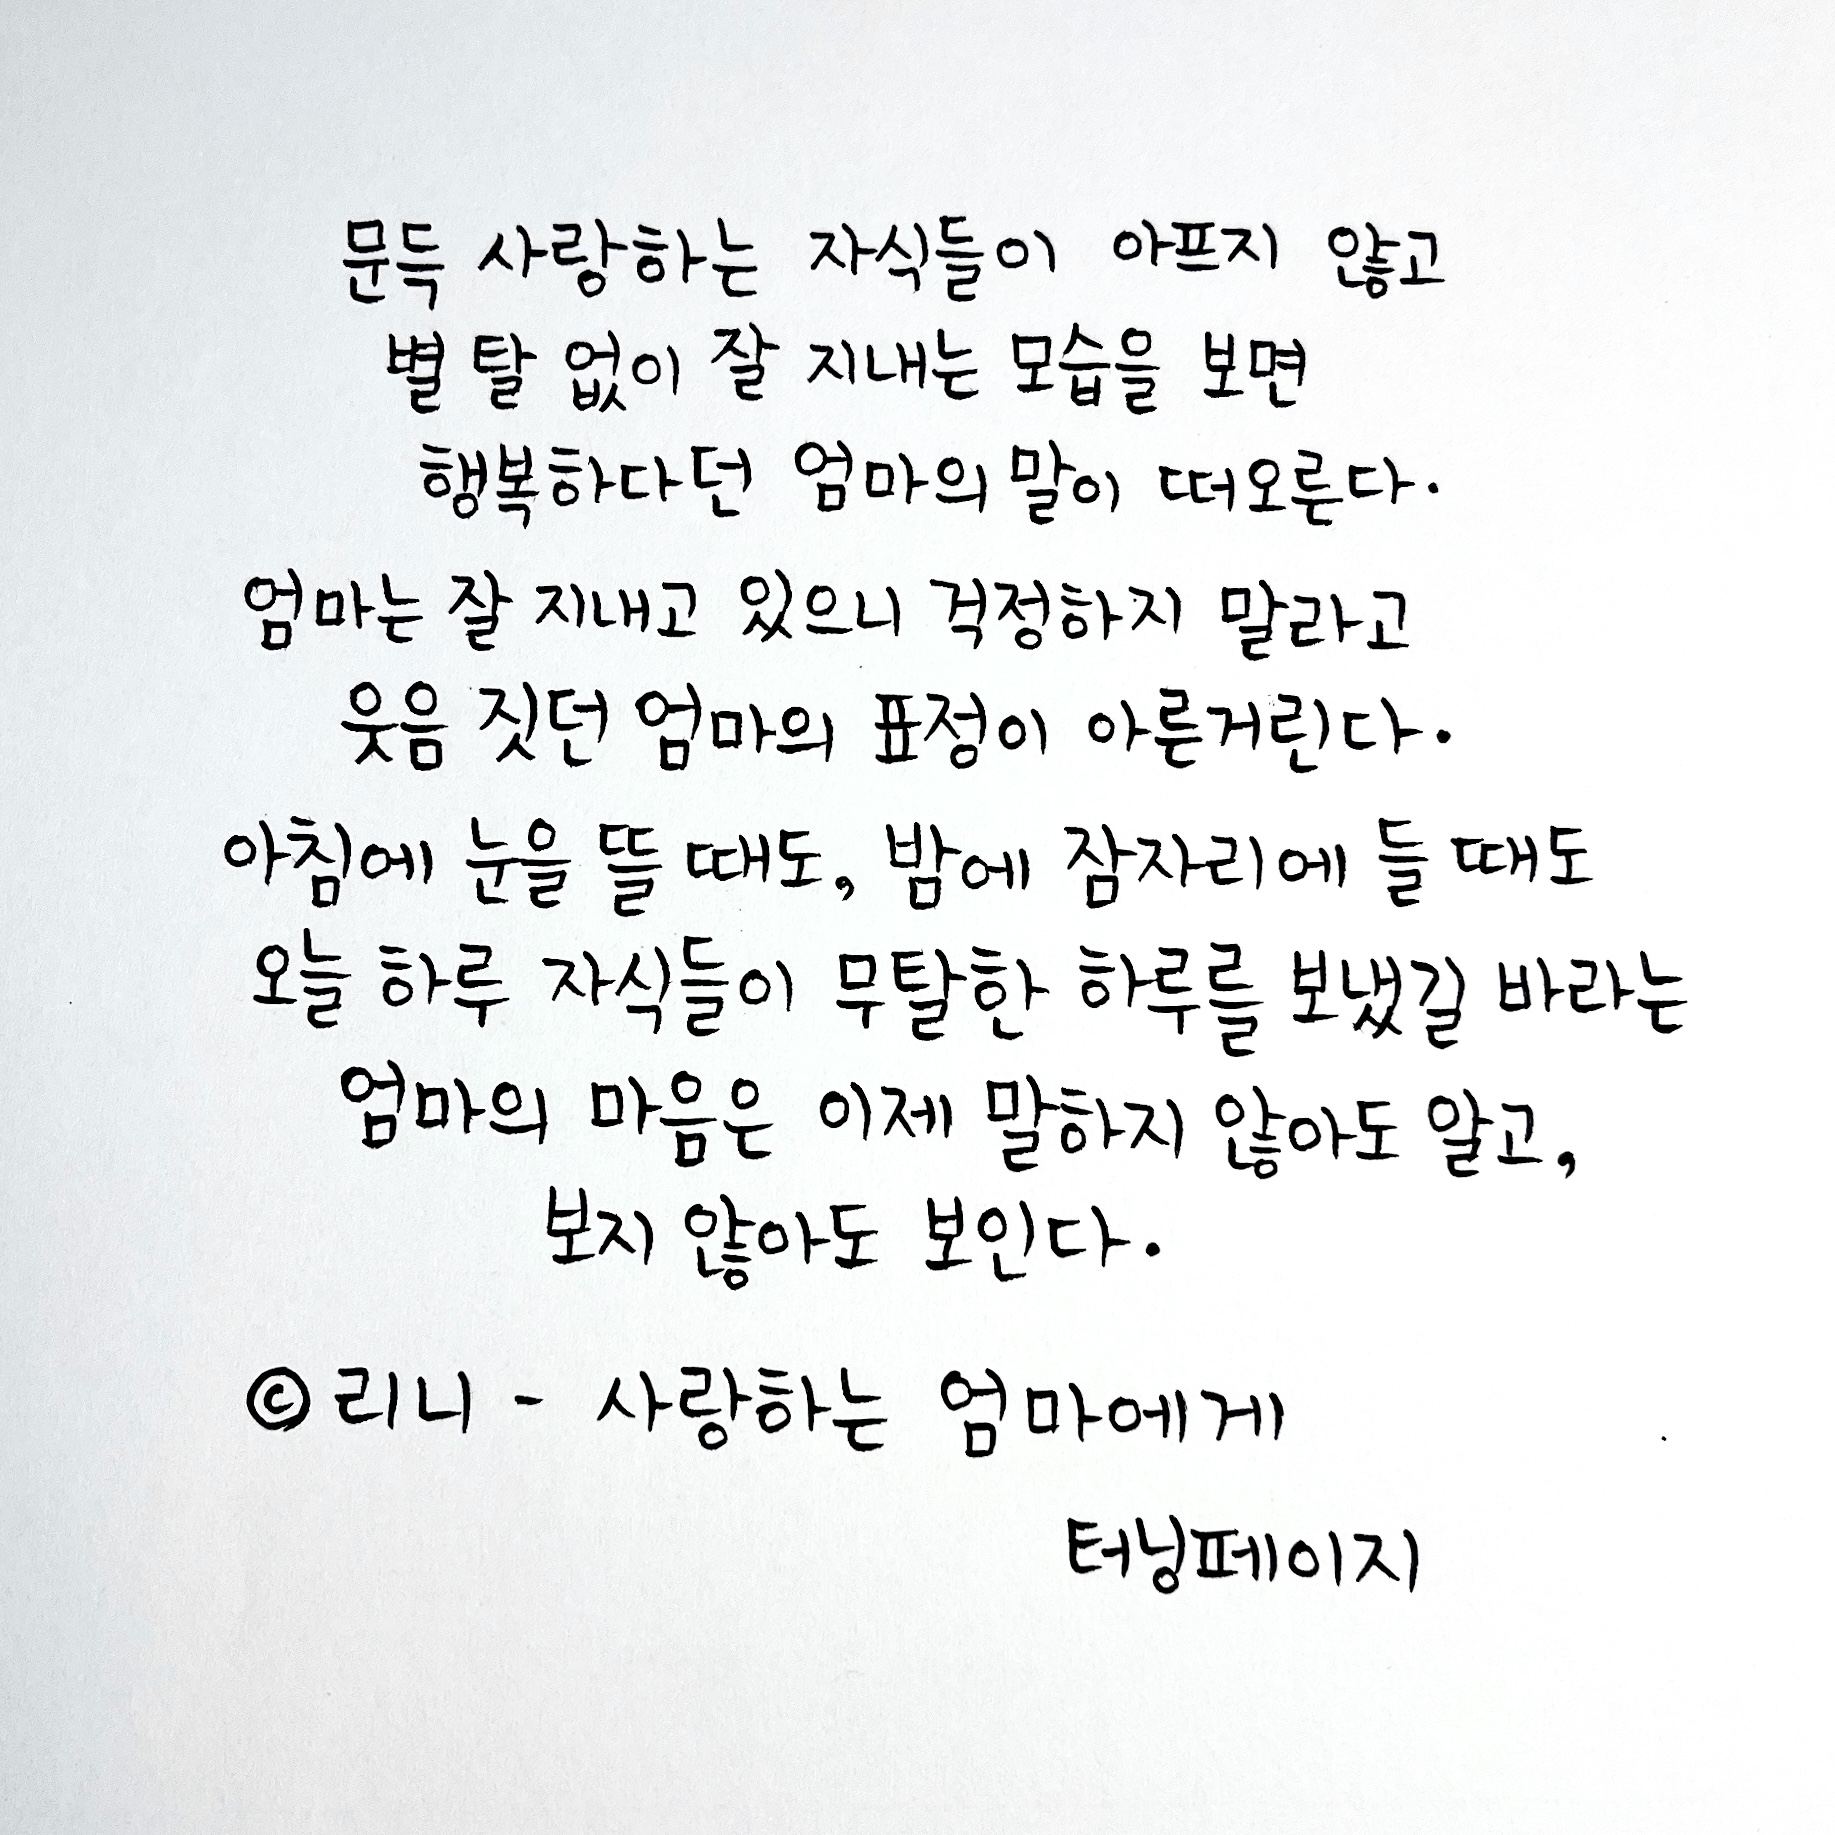 문득 사랑하는 자식들이 아프지 않고
별 탈 없이 잘 지내는 모습을 보면
행복하다던 엄마의 말이 떠오른다.
엄마는 잘 지내고 있으니 걱정하지 말라고
웃음 짓던 엄마의 표정이 아른거린다.
아침에 눈을 뜰 때도, 밤에 잠자리에 들 때도
오늘 하루 자식들이 무탈한 하루를 보냈길 바라는
엄마의 마음은 이제 말하지 않아도 알고,
보지 않아도 보인다.
© 리니 - 사랑하는 엄마에게
터닝페이지